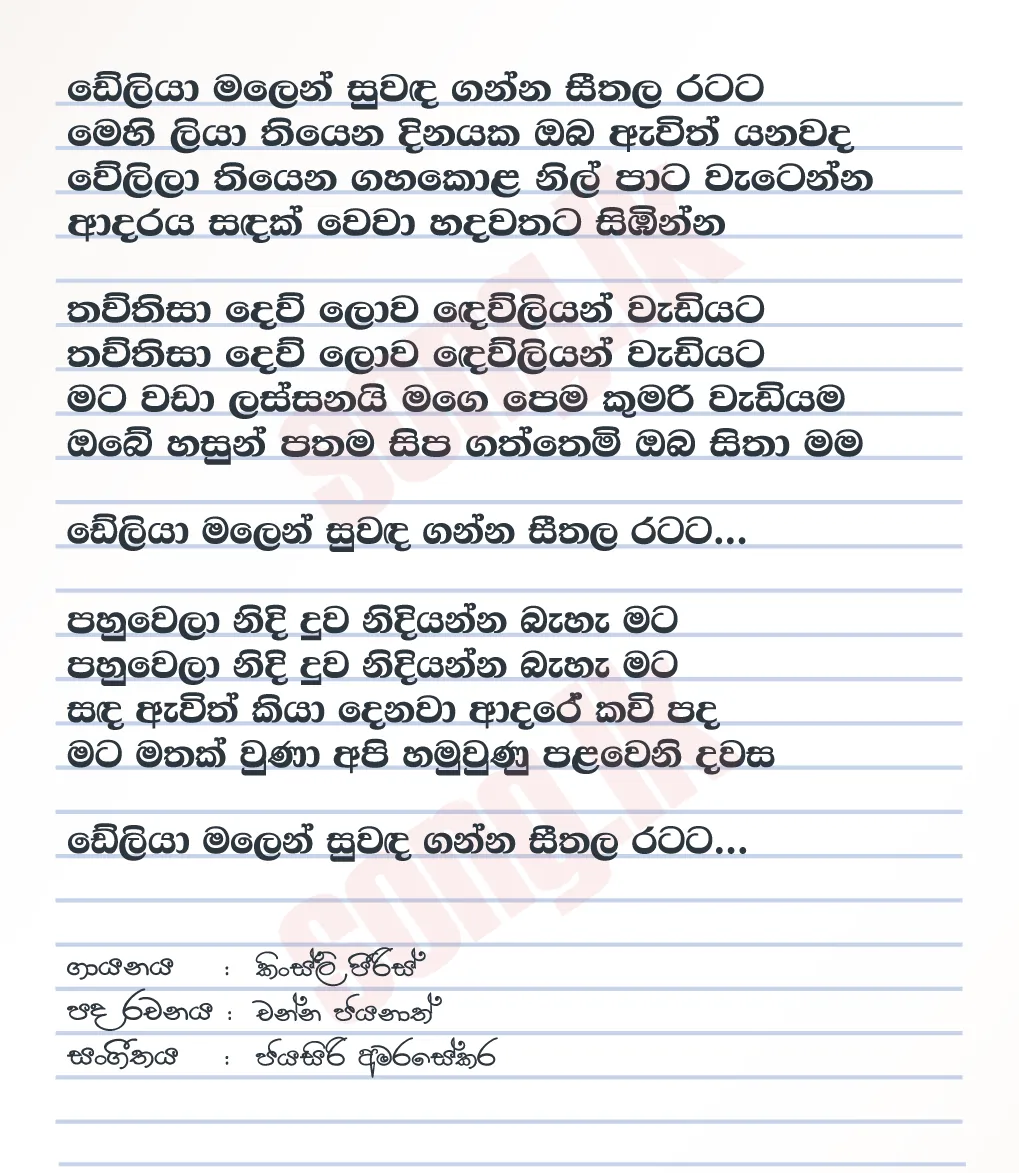 ඩේලියා මලෙන් සුවඳ ගන්න සීතල රටට
මෙහි ලියා තියෙන දිනයක ඔබ ඇවිත් යනවද
වේලිලා තියෙන ගහකොළ නිල් පාට වැටෙන්න
ආදරය සඳක් වෙවා හදවතට සිඹින්න
තව්තිසා දෙව් ලොව දෙව්ලියන් වැඩියට
තව්තිසා දෙව් ලොව දෙව්ලියන් වැඩියට
මට වඩා ලස්සනයි මගෙ පෙම කුමරි වැඩියම
ඔබේ හසුන් පතම සිප ගත්තෙමි ඔබ සිතා මම
ඩේලියා මලෙන් සුවඳ ගන්න සීතල රටට...
පහුවෙලා නිදි දුව නිදියන්න බැහැ මට
පහුවෙලා නිදි දුව නිදියන්න බැහැ මට
සඳ ඇවිත් කියා දෙනවා ආදරේ කවි පද
මට මතක් වුණා අපි හමුවුණු පළවෙනි දවස
ඩේලියා මලෙන් සුවඳ ගන්න සීතල රටට...
ගායනය : කිංස්ලි පීරිස්
පද රචනය : චන්න ජයනාත්
සංගීතය : ජයසිරි අමරසේකර
song.lk
song.lk